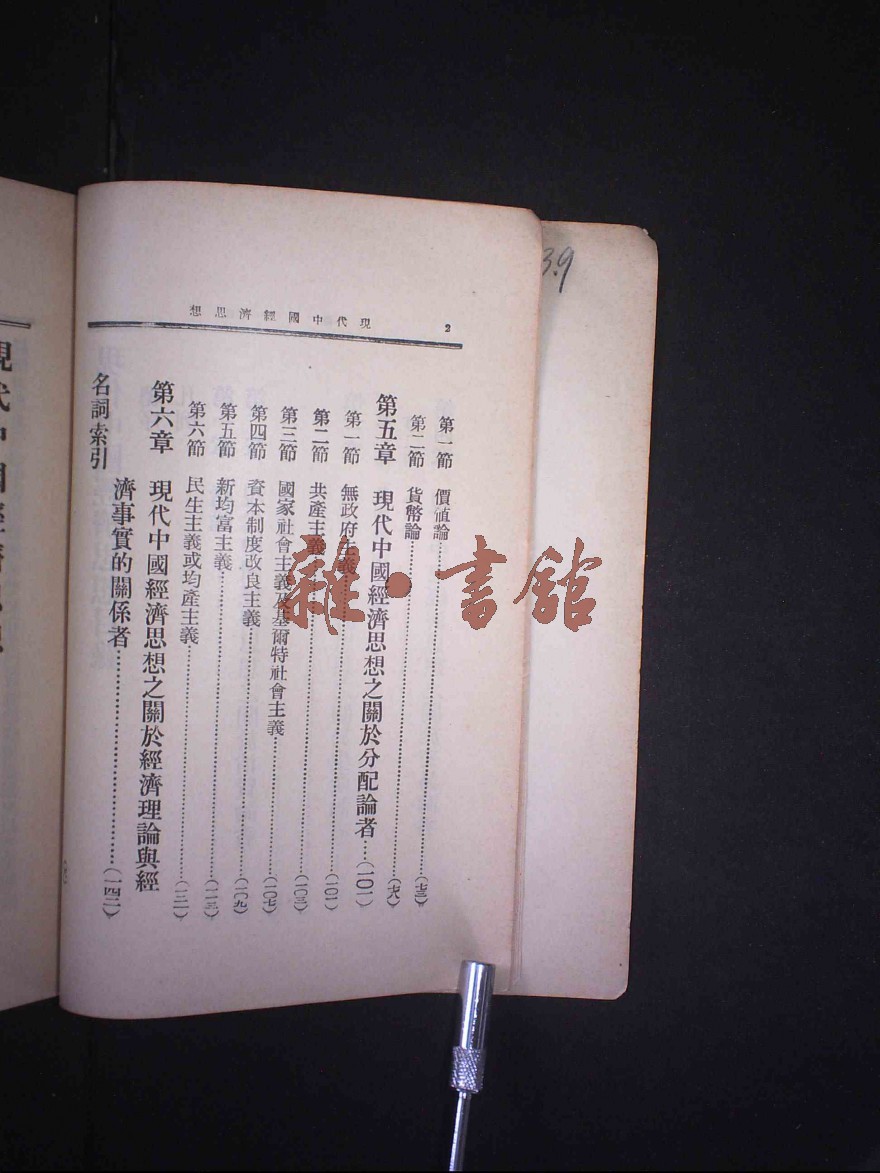 3.9
現代中國經濟思想
2
第一節 價値論……(七三)
第二節 貨幣論……(七八)
第五章 現代中國經濟思想之關於分配論者…(一〇一)
第一節 無政府主義……(一〇一)
第二節 共產主義……(一〇三)
第三節 國家社會主義及基爾特社會主義……(一〇七)
第四節 資本制度改良主義……(一〇九)
第五節 新均富主義……(一一三)
第六節 民生主義或均產主義……(一二一)
第六章 現代中國經濟思想之關於經濟理論與經
濟事實的關係者……(一四二)
名詞索引
現代中國經濟思想
雜·書館